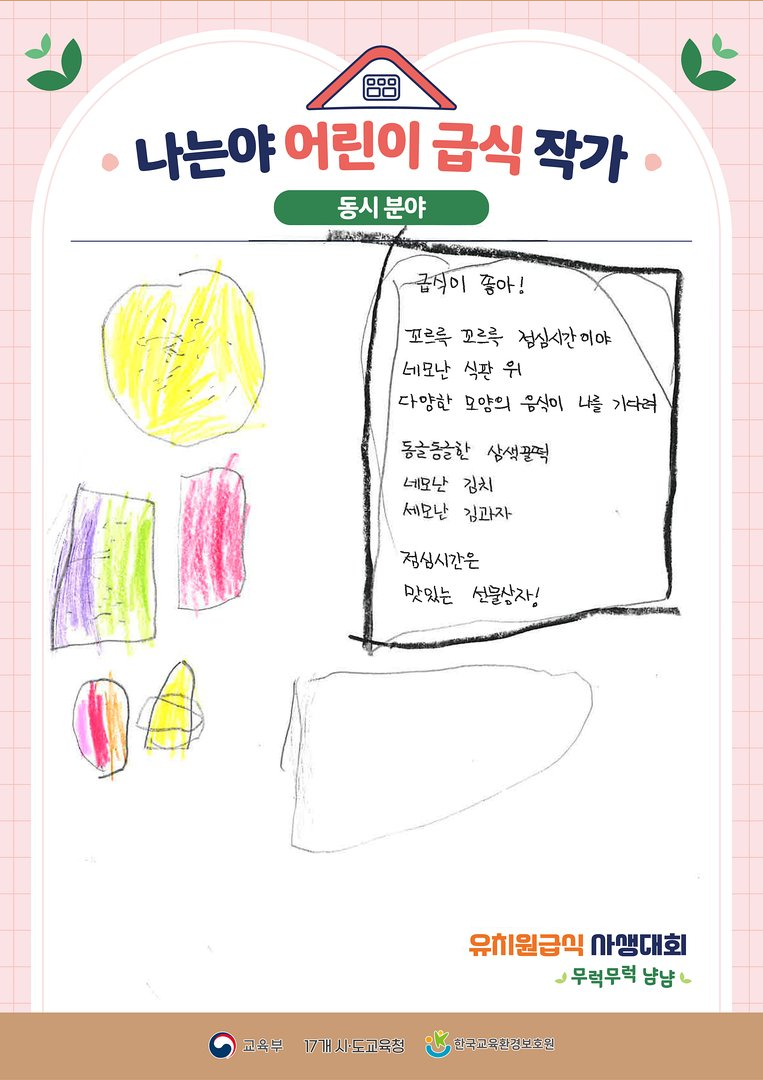 나는야 어린이 급식 작가
동시 분야
급식이 좋아!
꼬르륵 꼬르륵 점심시간이야
네모난 식판 위
다양한 모양의 음식이 나를 기다려
동글동글한 삼색꿀떡
네모난 김치
세모난 김과자
점심시간은
맛있는 선물상자!
유치원급식 사생대회
무럭무럭 냠냠
교육부 17개 시·도교육청 한국교육환경보호원